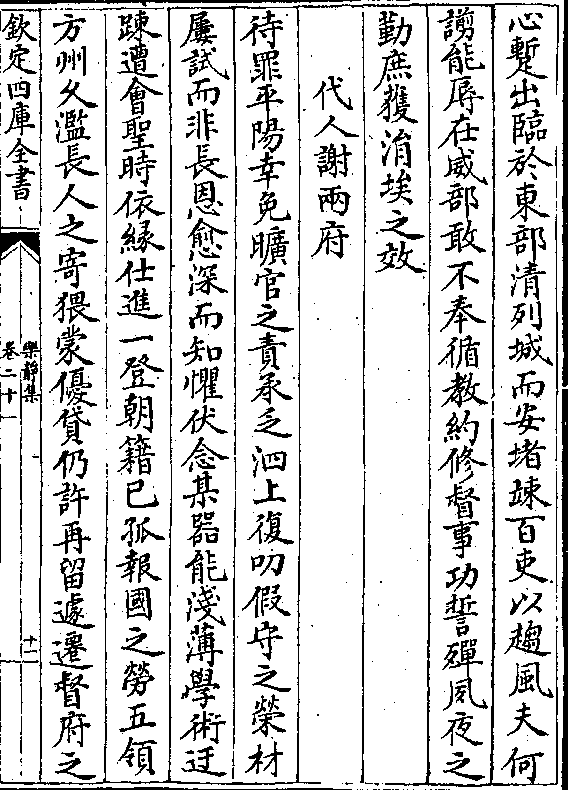 心蹔出臨於東部清列城而安堵竦百吏以趨風夫何
謭能辱在威部敢不奉循教約修督事功誓殫夙夜之
勤庶獲涓埃之效
代人謝兩府
待罪平陽幸免曠官之責承乏泗上復叨假守之榮材
屢試而非長恩愈深而知懼伏念某器能淺薄學術迂
踈遭會聖時依緣仕進一登朝籍已孤報國之勞五領
方州久濫長人之寄猥蒙優貸仍許再留遽遷督府之
欽定四庫全書
樂靜集
卷二十一
十一